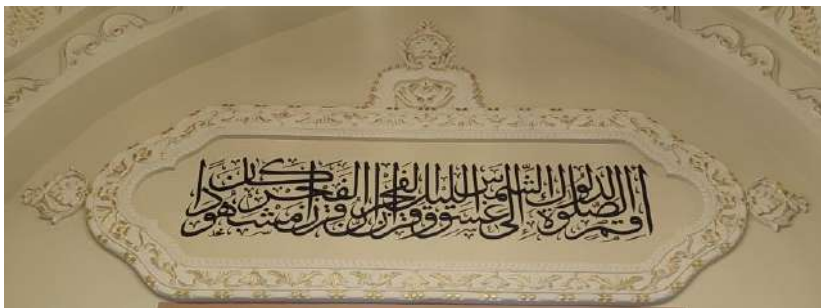 اقم الصلوة لدلوك الشمس الى غسق اليل وقران الفجر ان قران الفجر كان مشهودا